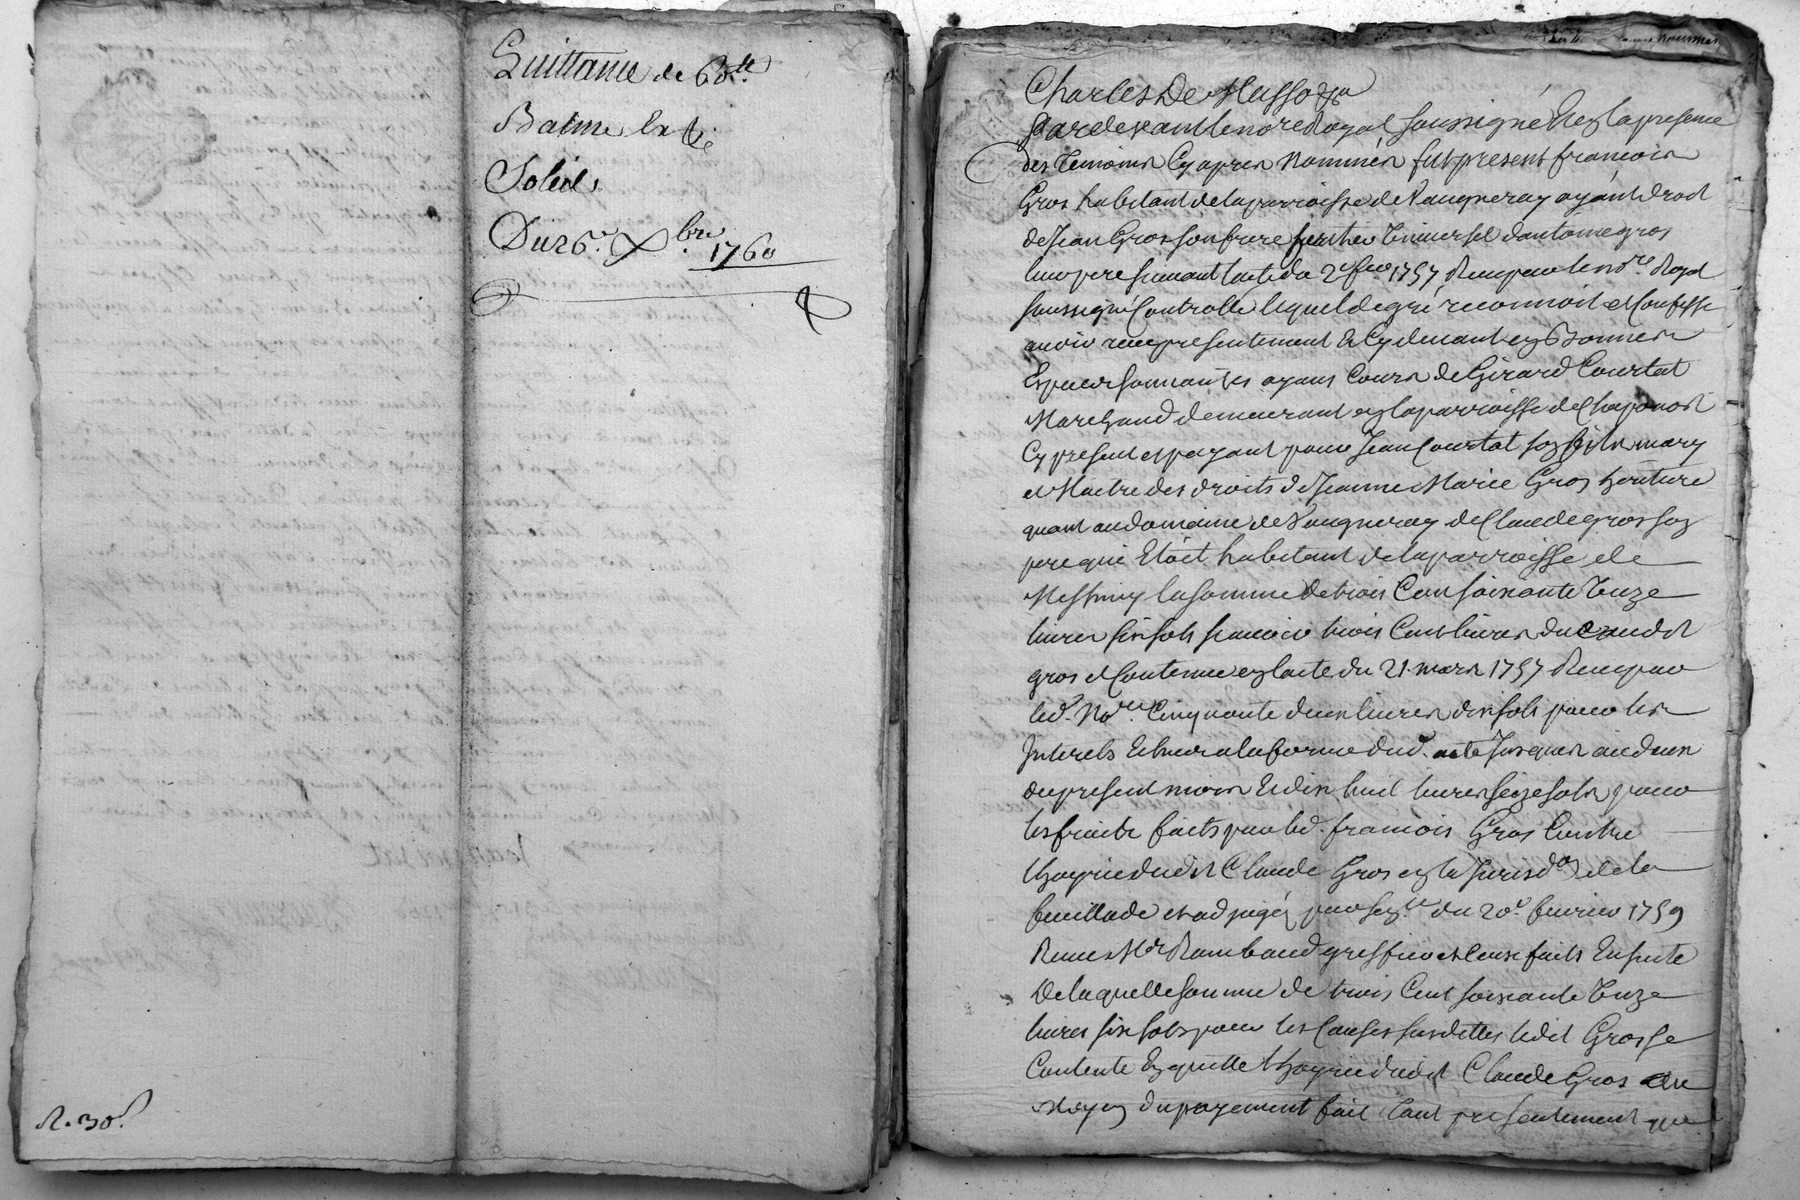 Quittance de 60.tt
Balme la
Soleil
Du 26.e Xbre
1760
R. 30.s
Charles De Masso
Pardevant le no.re Royal soussigné et en la presence
des temoins cy apres nommés fut present francois
Gros habitant de la parroisse de Vaugneray ayant droit
de Jean Gros son frere heritier universel d'antoine gros
leur pere suivant l'acte du 2.e fev.r 1757 Receu par le no.re Royal
soussigné Controllé lequel de gré reconnoit et Confesse
avoir receu presentement et cy devant en Bonnes
Especes sonnantes ayans Cours de Girard Courtat
Marchand demeurant en la parroisse de Chaponost
Cy present et payant pour Jean Courtat son fils mary
et Maitre des droits de Jeanne Marie Gros heritiere
quant au domaine de Vaugneray de Claude gros son
pere qui Etoit habitant de la parroisse de
Messimy la somme de trois Cent soixante Unze
livres six sols scavoir trois Cent livres du dudit
gros et Contenue en l'acte du 21. mars 1757 Receu par
led. No.re Cinquante deux livres dix sols pour les
Interets Echus a la forme dud. acte Jusques au deux
du present mois Et dix huit livres seize sols pour
les fraits faits par led. francois Gros Contre
l'hoyrie dudit Claude Gros en la Jurisd.on de la
feuillade et adjugés par sen.ce du 20.e fevrier 1759
Receue M.e Rambaud greffier et Ceux faits Ensuite
De laquelle somme de trois Cent soixante Unze
livres six sols pour les Causes susdittes ledit Gros se
Contente En quitte l'hoyrie dudit Claude Gros au
Moyen du payement fait tant presentement que